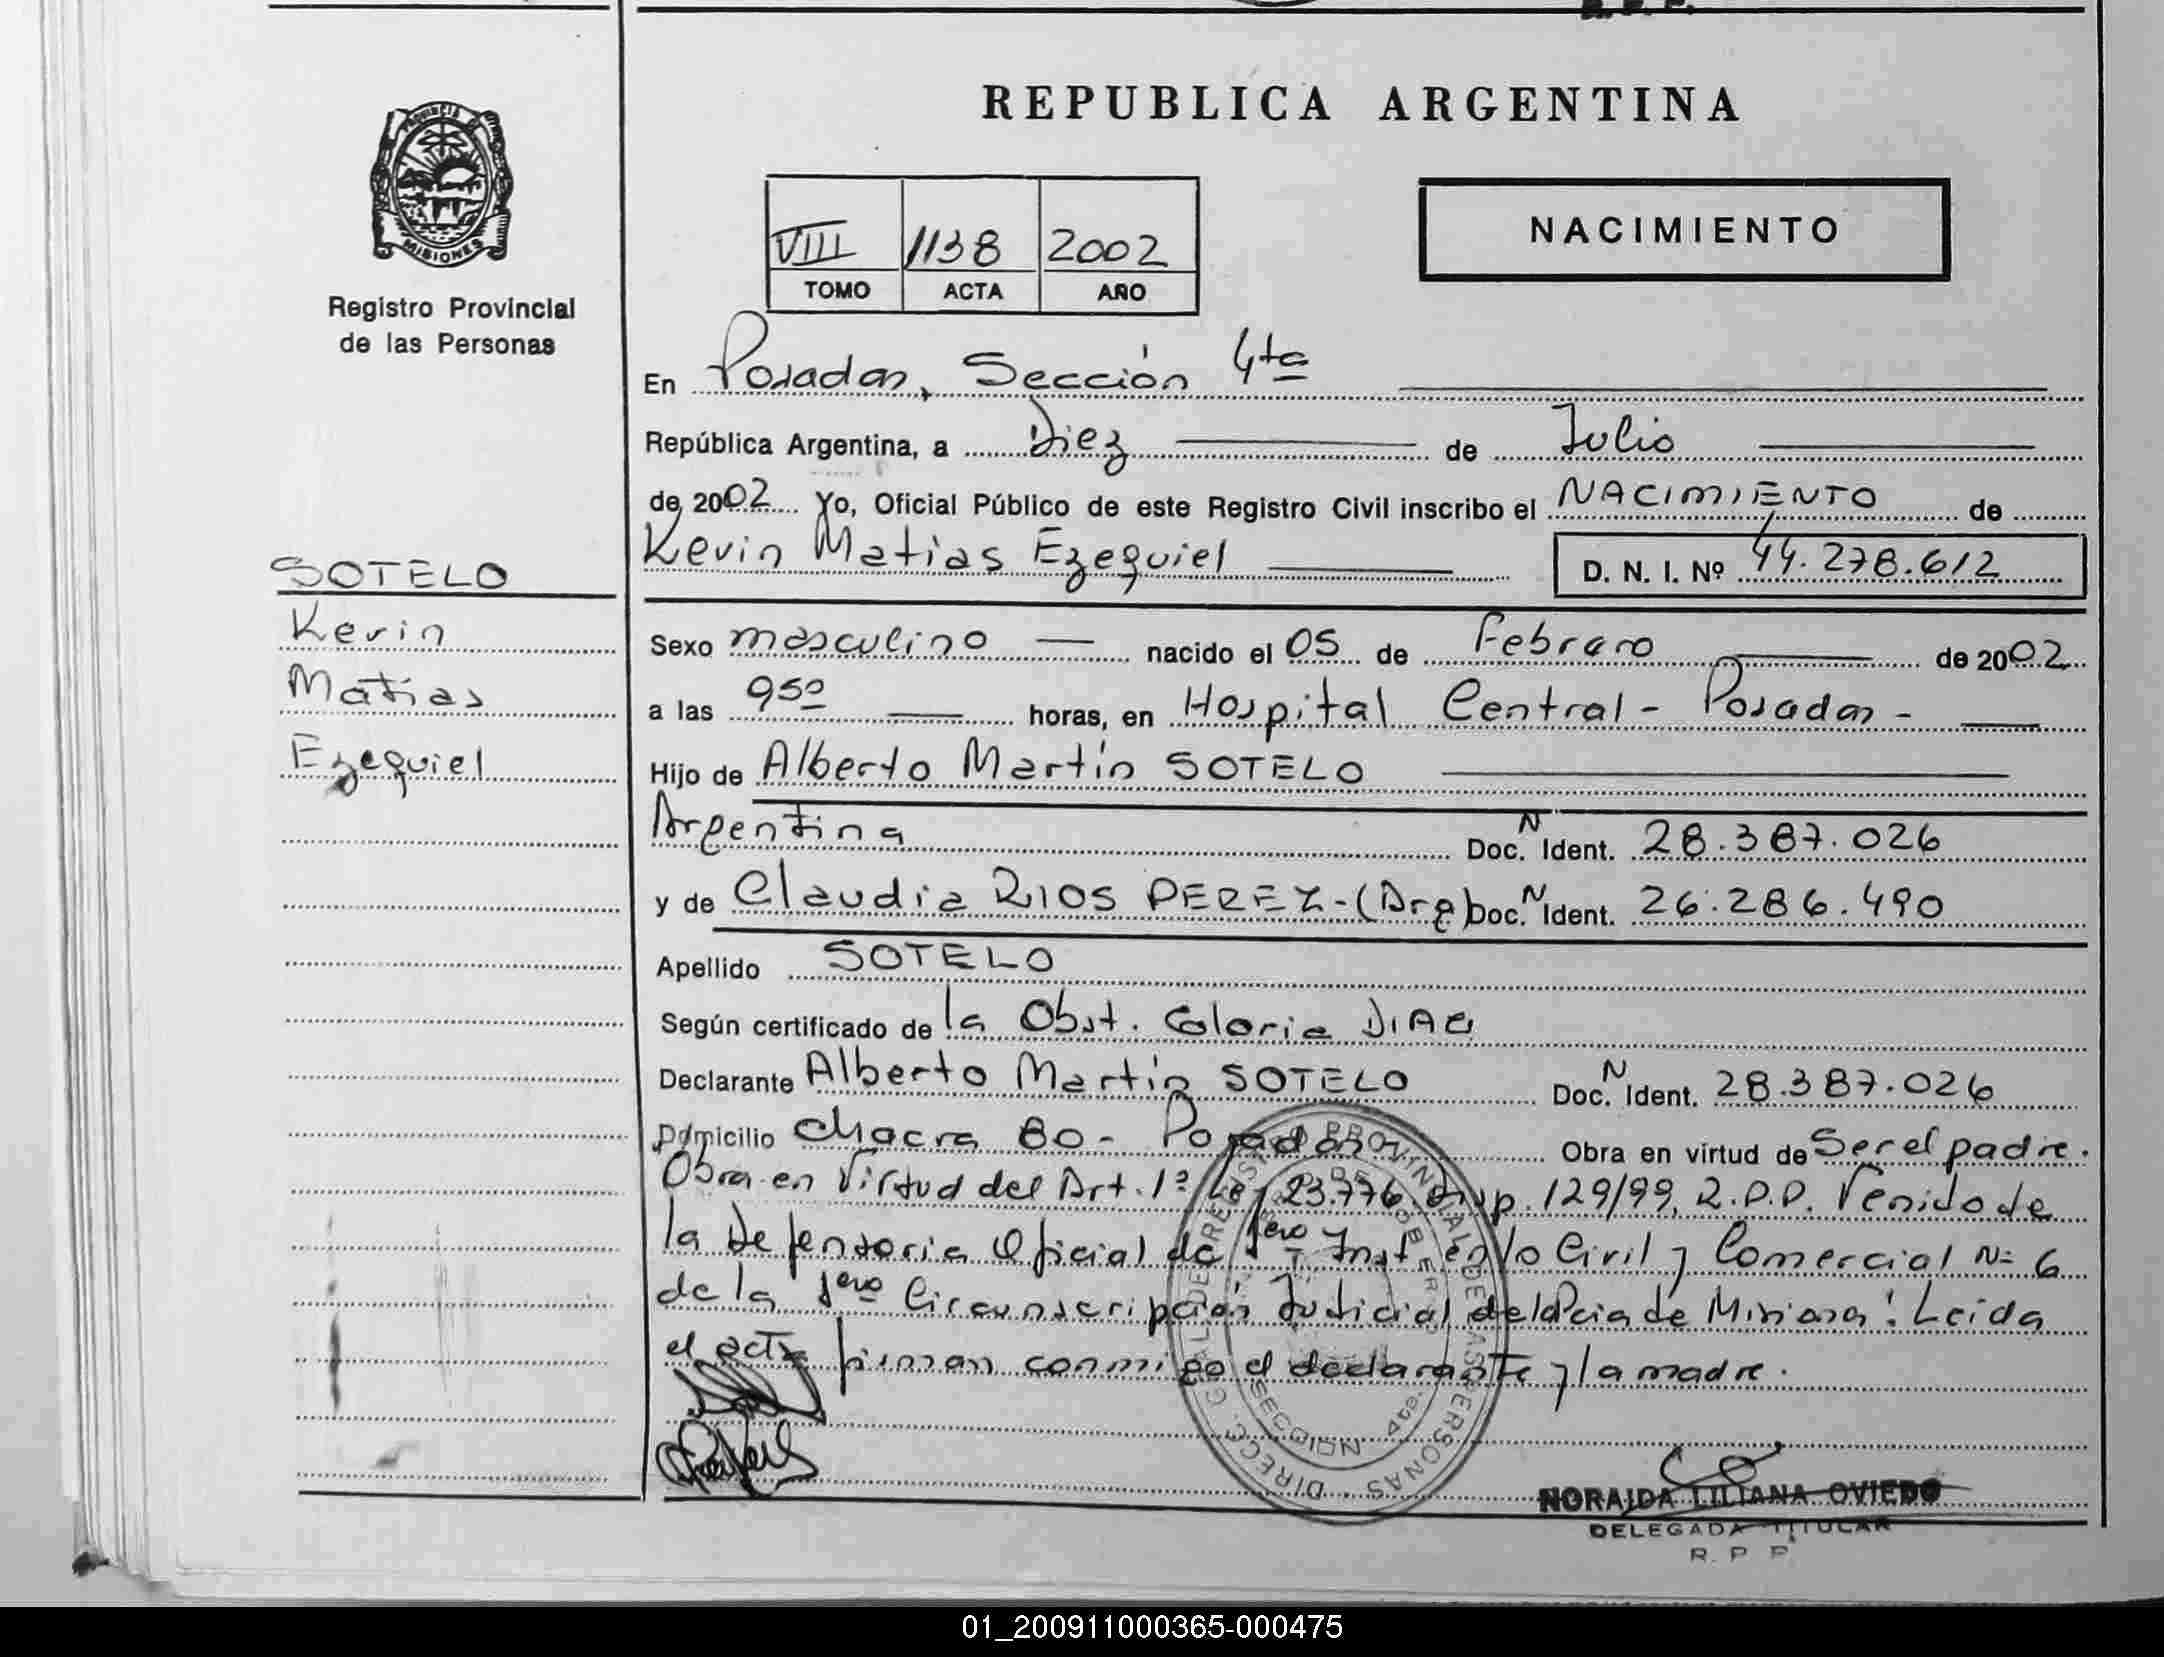 REPUBLICA ARGENTINA
PROVINCIA DE
MISIONES
Registro Provincial
de las Personas
VIII 1138 2002
TOMO ACTA AÑO
NACIMIENTO
En Posadas, Sección 4ta
República Argentina, a Diez de Julio
de 2002 Yo, Oficial Público de este Registro Civil inscribo el NACIMIENTO de
Kevin Matias Ezequiel D. N. I. Nº 44.278.612
SOTELO
Kevin
Matias
Ezequiel
Sexo masculino nacido el 05 de Febrero de 2002
a las 950 horas, en Hospital Central - Posadas -
Hijo de Alberto Martín SOTELO
Argentina Doc. N Ident. 28.387.026
y de Claudia RIOS PEREZ - (Arg) Doc. N Ident. 26.286.490
Apellido SOTELO
Según certificado de la Obst. Gloria DIAZ
Declarante Alberto Martín SOTELO Doc. N Ident. 28.387.026
Domicilio Chacra 80 - Posadas Obra en virtud de Ser el padre.
Obra en Virtud del Art. 1º Ley 23.776 Disp. 129/99, R.P.P. Venido de
la Defensoria Oficial de 1era Inst en lo Civil y Comercial Nº 6
de la 1era Circunscripción Judicial de la Pcia de Misiones. Leida
el acta firman conmigo el declarante y la madre.
DIRECC. GRAL DE REGISTRO PROVINCIAL DE LAS PERSONAS
SECCION 4ta.
NORAIDA LILIANA OVIEDO
DELEGADA TITULAR
R. P. P.
01_200911000365-000475